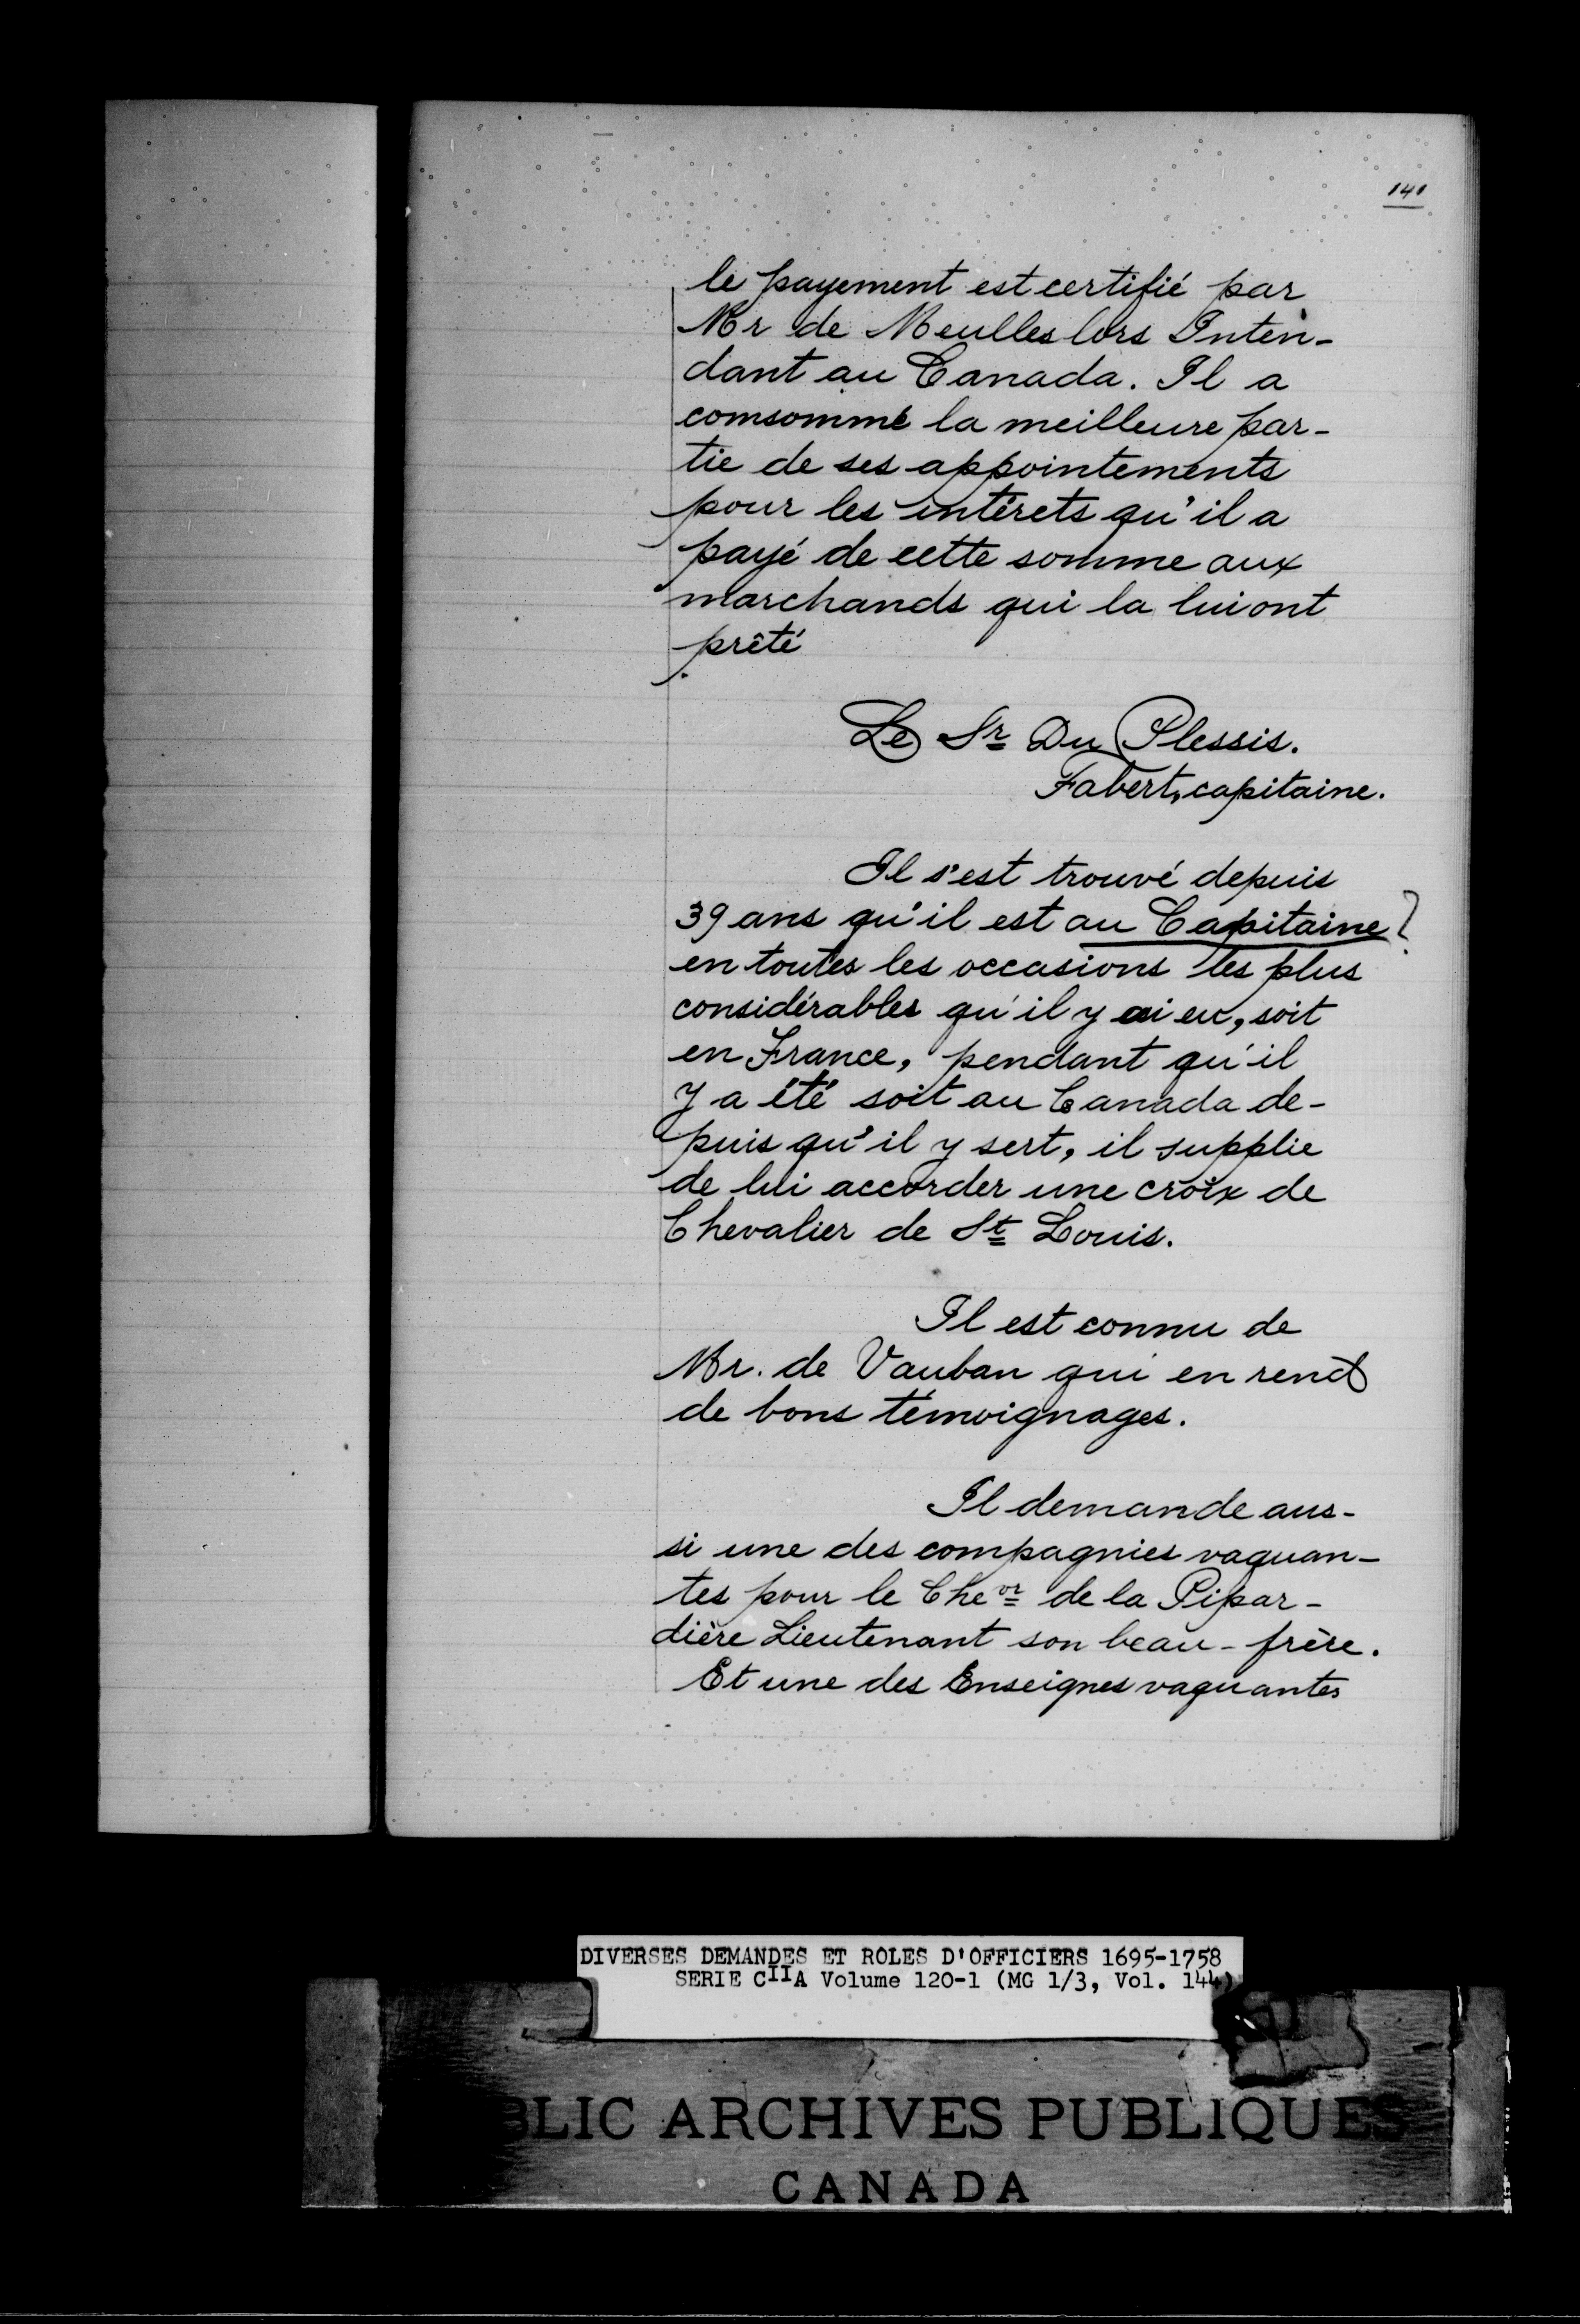 141
le payement est certifié par
Mr de Meulles lors Inten-
dant au Canada. Il a
comsommé la meilleure par-
tie de ses appointements
pour les intérets qu'il a
payé de cette somme aux
marchands qui la lui ont
prêté
Le Sr Du Plessis.
Fabert, capitaine.
Il s'est trouvé depuis
39 ans qu'il est au Capitaine ?
en toutes les occasions les plus
considérables qu'il y ai eu, soit
en France, pendant qu'il
y a été soit au Canada de-
puis qu'il y sert, il supplie
de lui accorder une croix de
Chevalier de St Louis.
Il est connu de
Mr. de Vauban qui en rend
de bons témoignages.
Il demande aus-
si une des compagnies vaquan-
tes pour le Cheor de la Pipar-
dière Lieutenant son beau-frère.
Et une des Enseignes vaquantes
DIVERSES DEMANDES ET ROLES D'OFFICIERS 1695-1758
SERIE CIIA Volume 120-1 (MG 1/3, Vol. 144)
BLIC ARCHIVES PUBLIQUES
CANADA